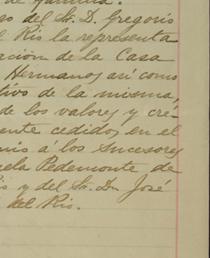 de familia.
so del Sr. D. Gregorio
l Rio la representa
ación de la Casa
Hermanos, así como
tivo de la misma,
de los valores y cré-
ente cedidos en el
nio á los Sucesores
ela Pedemonte de
is y del Sr. Dn José
del Rio.